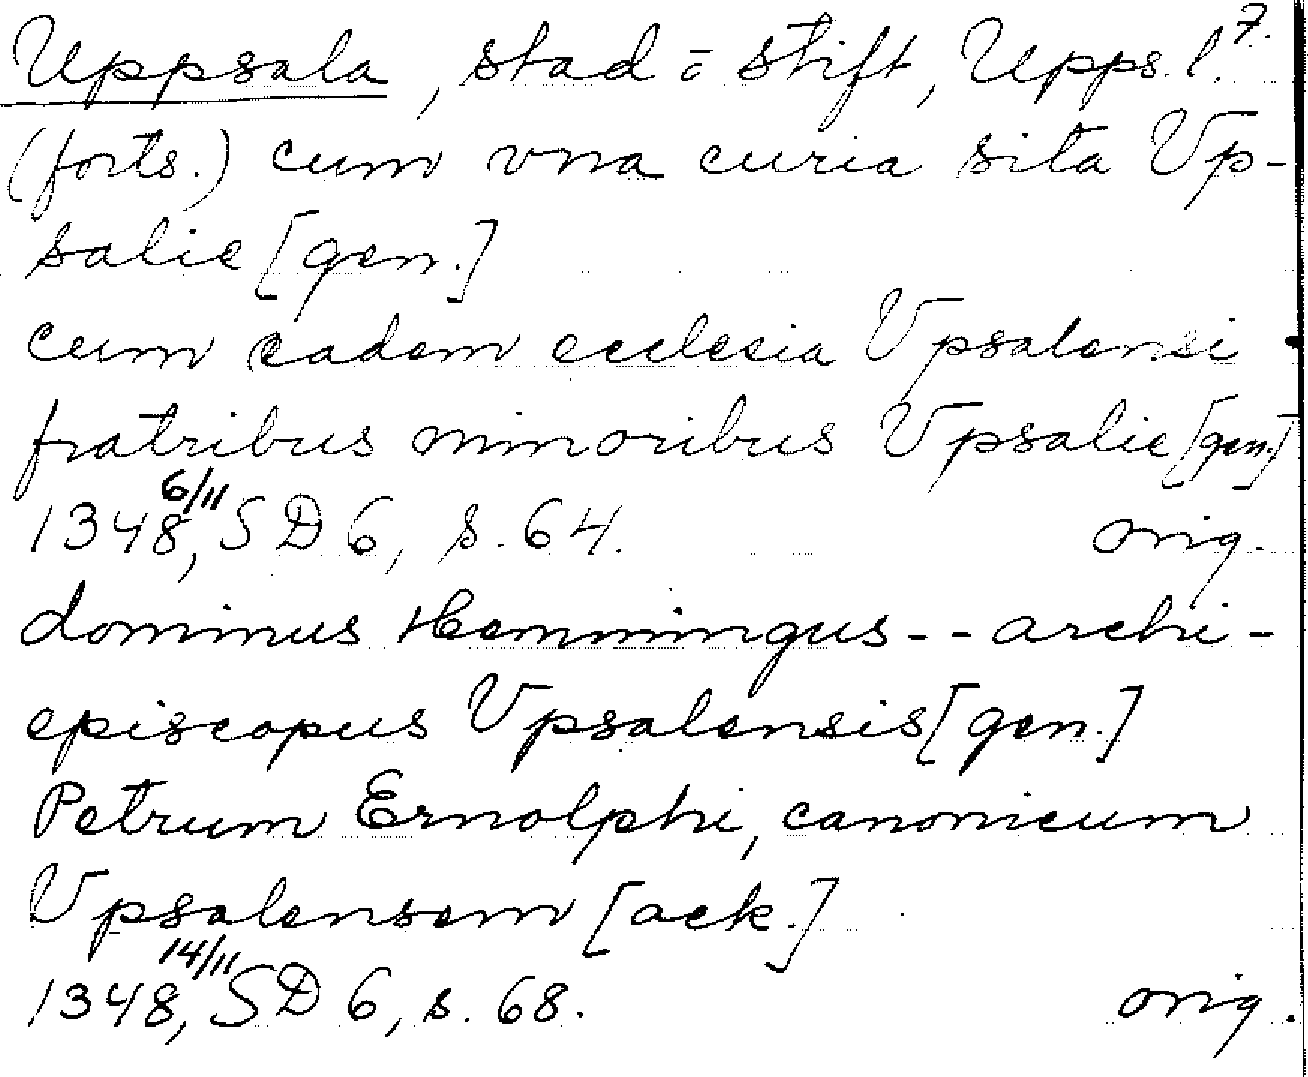 Uppsala, stad o stift, Upps. l. 7.
(forts.) cum vna curia sita Vp-
salie [gen.]
cum eadem ecclesia Vpsalensi
fratribus minoribus Vpsalie [gen.]
1348, 6/11 SD 6, s. 64. orig.
dominus Hemmingus -- archi-
episcopus Vpsalensis [gen.]
Petrum Ernolphi, canonicum
Vpsalensem [ack.]
1348, 14/11 SD 6, s. 68. orig.